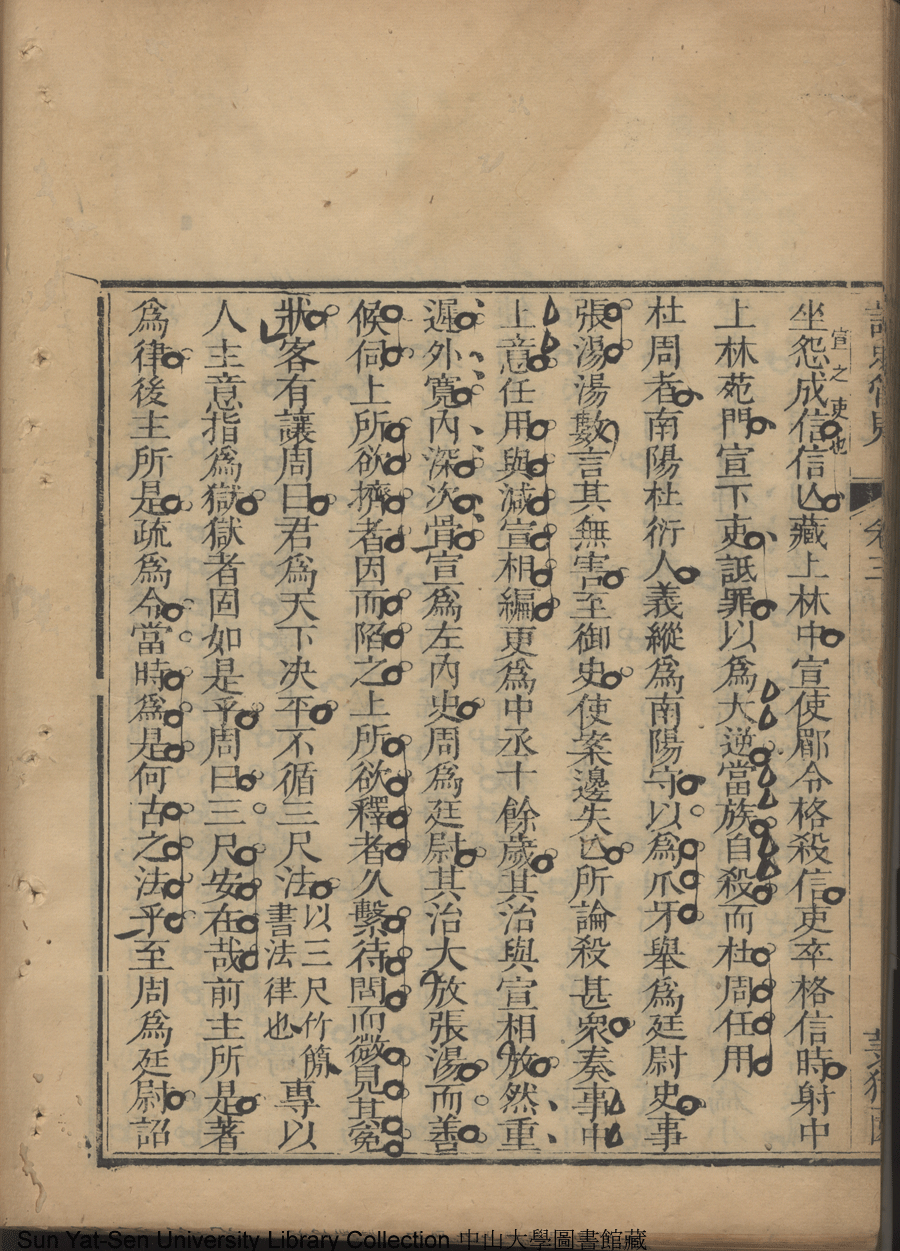 卷三
坐怨成信信亾藏上林中宣使郿令格殺信吏卒格信時射中
宣之吏也
上林苑門宣下吏詆罪以爲大逆當族自殺而杜周任用
杜周者南陽杜衍人義縱爲南陽守以爲爪牙舉爲廷尉史事
張湯湯數言其無害至御史使案邊失亾所論殺甚衆奏事中
上意任用與減宣相編更爲中丞十餘歲其治與宣相放然重
遲外寬內深次骨宣爲左內史周爲廷尉其治大放張湯而善
候伺上所欲擠者因而陷之上所欲釋者久繫待問而微見其冤
狀客有讓周曰君爲天下决平不循三尺法以三尺竹簡書法律也專以
人主意指爲獄獄者固如是乎周曰三尺安在哉前主所是著
爲律後主所是疏爲令當時爲是何古之法乎至周爲廷尉詔
Sun Yat-Sen University Library Collection 中山大學圖書館藏